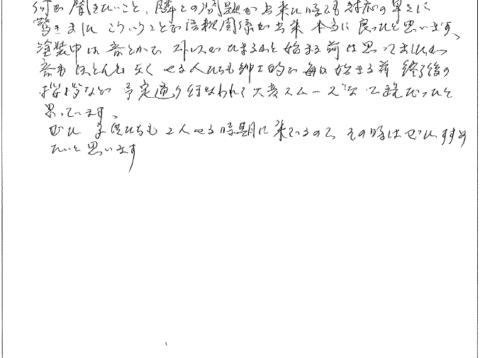 何か聞きたいこと、隣との問題が出来た時も対応の早さに
驚きました こういうことが信頼関係が出来 本当に良かったと思います。
塗装中は音とかで ストレスがたまるかと始まる前は思ってましたが
音もほとんどなく せる人たちも紳士的で毎日始まる前 終了後の
挨拶など 予定通り行なわれて大変スムーズな で良かったと
思っています。
ぜひ 子供たちも 2人 せる時期に来ているので、その時はぜひすすめ
たいと思います